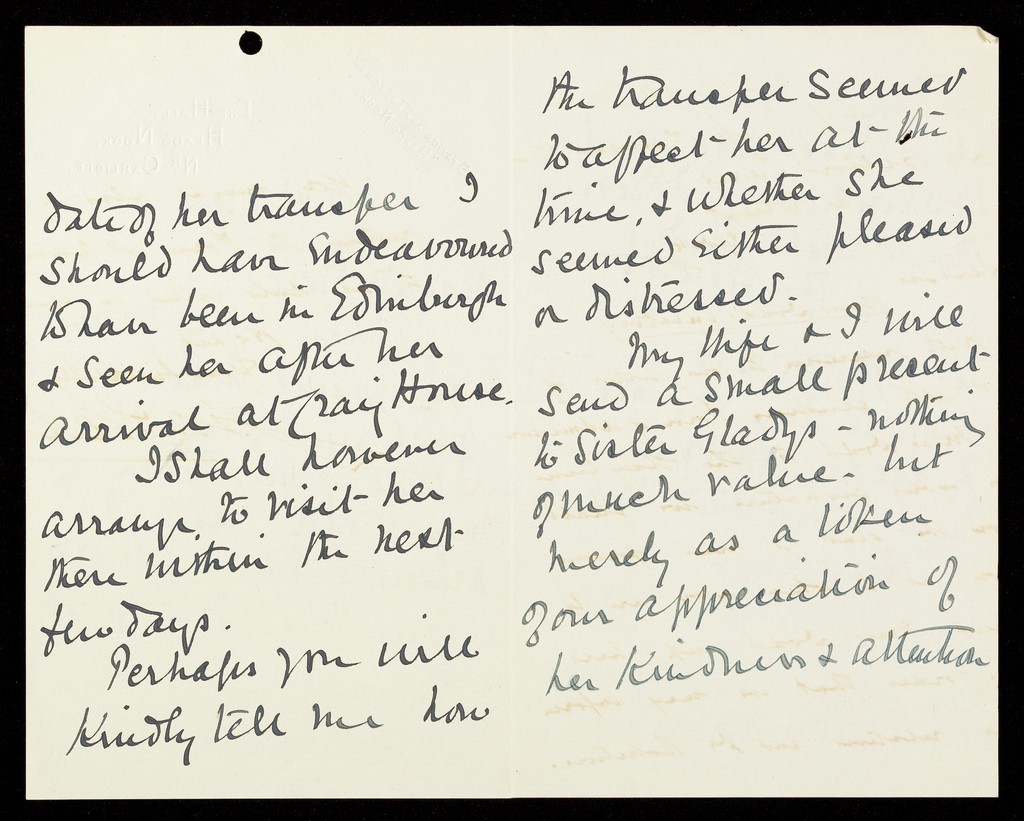 date of her transfer I
should have endeavoured
to have been in Edinburgh
& seen her after her
arrival at Craig House.
I shall however
arrange to visit her
there within the next
few days.
Perhaps you will
kindly tell me how
the transfer seemed
to affect her at the
time, & whether she
seemed either pleased
or distressed.
My Wife & I will
send a small present
to Sister Gladys - nothing
of much value - but
merely as a token
of our appreciation of
her kindness & attention